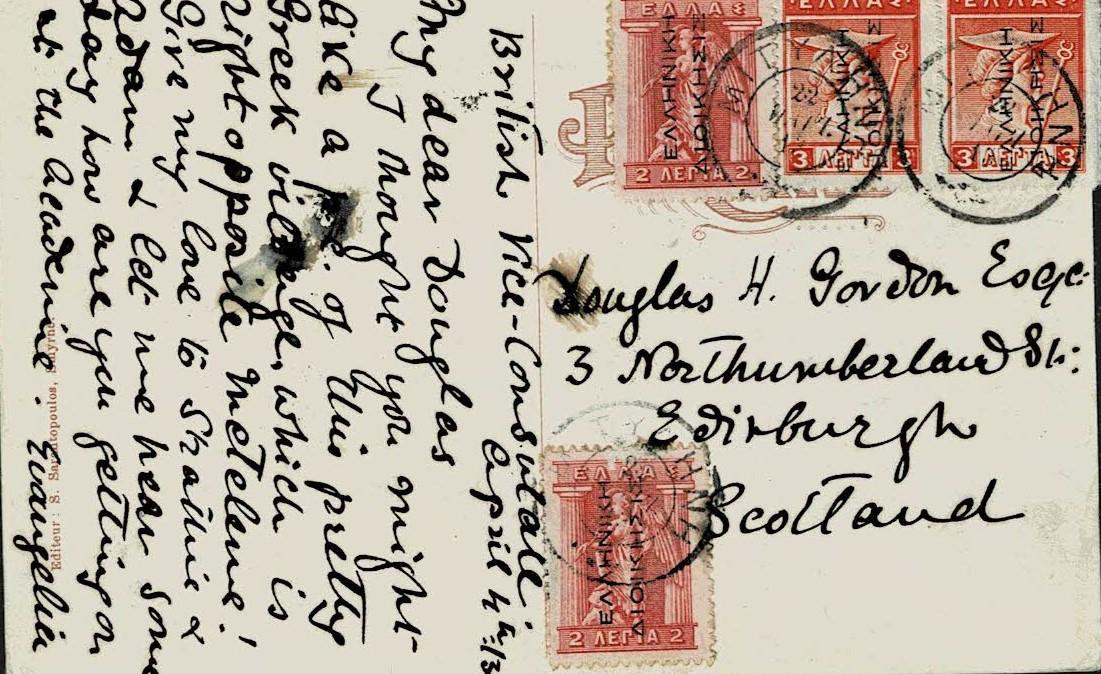 British Vice-Consulate
April 4th/13
My dear Douglas
I thought you might
like a p.c. of this pretty
Greek village, which is
right opposite Metelane!
Give my love to Strathie &
Adam & let me hear some
day how are you getting on
at the Academie. Evangelia
Editeur: S. Smyrne
Douglas H. Gordon Esqe.
3 Northumberland St:
Edinburgh
Scotland
ΕΛΛΑΣ
ΕΛΛΗΝΙΚΗ
ΔΙΟΙΚΗΣΙΣ
2 ΛΕΠΤΑ 2
ΕΛΛΑΣ
ΕΛΛΗΝΙΚΗ
ΔΙΟΙΚΗΣΙΣ
3 ΛΕΠΤΑ 3
ΕΛΛΑΣ
ΕΛΛΗΝΙΚΗ
ΔΙΟΙΚΗΣΙΣ
3 ΛΕΠΤΑ 3
ΕΛΛΑΣ
ΕΛΛΗΝΙΚΗ
ΔΙΟΙΚΗΣΙΣ
2 ΛΕΠΤΑ 2
ΜΙΤΥΛΗΝΗ